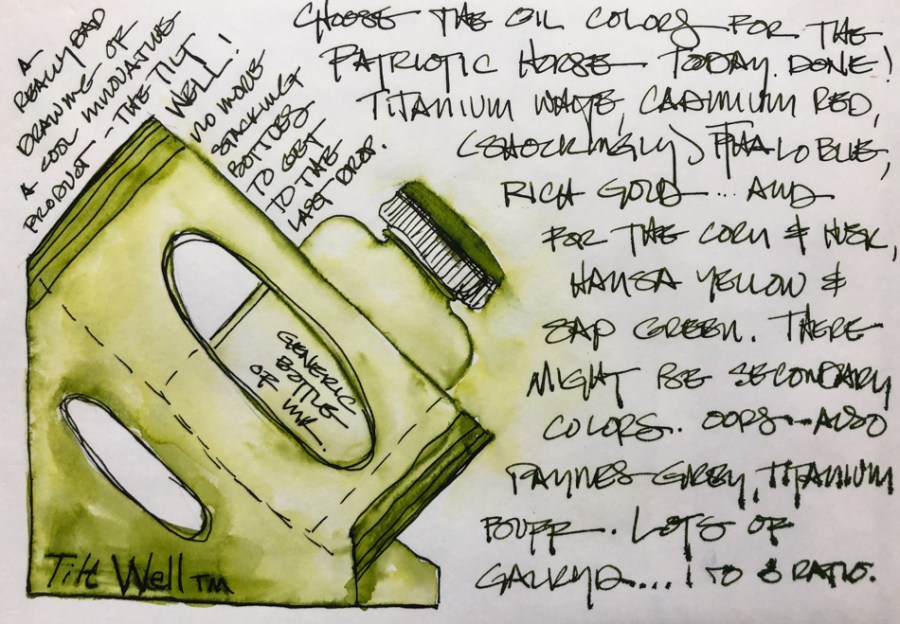 A
REALLY BAD
DRAWING OF
A COOL INNOVATIVE
PRODUCT - THE TILT
WELL!
NO MORE
STACKING
BOTTLES
TO GET
TO THE
LAST DROP.
CHOOSE THE OIL COLORS FOR THE
PATRIOTIC HORSE TODAY. DONE!
TITANIUM WHITE, CADMIUM RED,
(SHOCKINGLY) PHALO BLUE,
RICH GOLD... AND
FOR THE CORN & HUSK,
HANSA YELLOW &
SAP GREEN. THERE
MIGHT BE SECONDARY
COLORS. OOPS... ALSO
PAYNES GREY, TITANIUM
BUFF. LOTS OF
GALKYD.... 1 TO 3 RATIO.
GENERIC
BOTTLE
OF INK.
Tilt Well TM